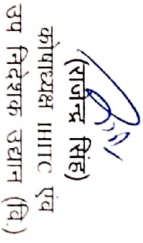 (राजेन्द्र सिंह)
कोषाध्यक्ष IHITC एवं
उप निदेशक उद्यान (वि.)